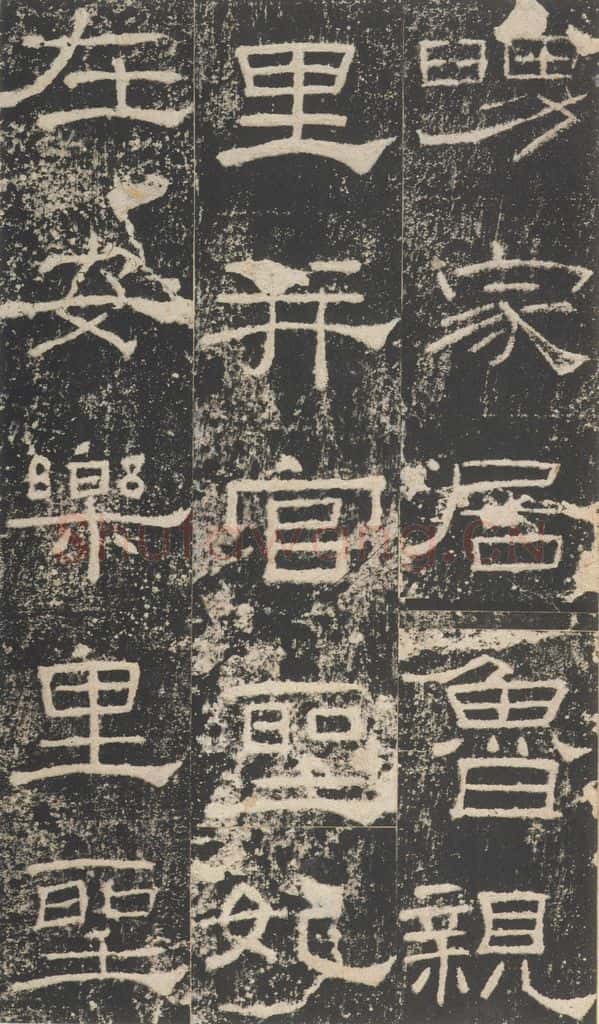 舅家居魯親
里并官聖妃
在安樂里聖
Shufawang.CN